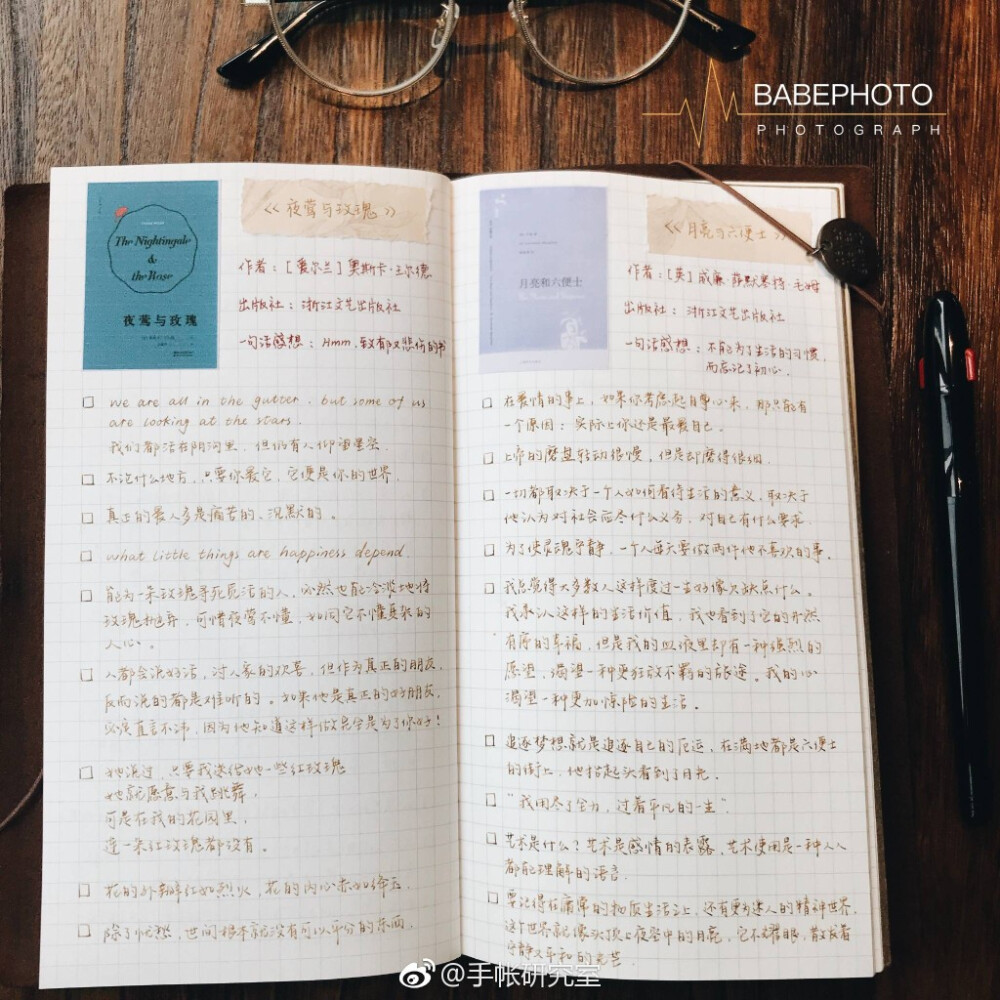 BABEPHOTO
PHOTOGRAPH
The Nightingale
&
the Rose
夜莺与玫瑰
《夜莺与玫瑰》
作者：[爱尔兰]奥斯卡·王尔德
出版社：浙江文艺出版社
一句话感想：Hmm，致郁又悲伤的书
we are all in the gutter, but some of us
are looking at the stars.
我们都活在阴沟里，但仍有人仰望星空
不论什么地方，只要你爱它，它便是你的世界
真正的爱人多是痛苦的、沉默的。
what little things are happiness depend.
能为一朵玫瑰寻死觅活的人，必然也能冷漠地将
玫瑰抛弃，可惜夜莺不懂，如同它不懂真农的
人心。
人都会说好话，讨人家的欢喜，但作为真正的朋友，
反而说的都是难听的。如果他是真正的好朋友，
必须直言不讳，因为他知道这样做完全是为了你好！
她说过，只要我送给她一些红玫瑰
她就愿意与我跳舞，
可是在我的花园里，
连一朵红玫瑰都没有。
花的外瓣红如烈火，花的内心赤如绛玉
除了忧愁，世间根本就没有可以平分的东西，
月亮和六便士
《月亮与六便士》
作者：[英]威廉·萨默塞特·毛姆
出版社：浙江文艺出版社
一句话感想：不能为了生活的习惯，
而忘记了初心，
在爱情的事上，如果你考虑起自尊心来，那只能有
一个原因：实际上你还是最爱自己。
上帝的磨盘转动很慢，但是却磨得很细
一切都取决于一个人如何看待生活的意义，取决于
他认为对社会应尽什么义务，对自己有什么要求
为了使灵魂宁静，一个人每天要做两件他不喜欢的事。
我总觉得大多数人这样度过一生好像欠缺点什么。
我承认这样的生活价值，我也看到了它的井然
有序的幸福，但是我的血液里却有一种强烈的
愿望，渴望一种更狂放不羁的旅途。我的心
渴望一种更加惊险的生活。
追逐梦想就是追逐自己的厄运，在满地都是六便士
的街上，他抬起头看到了月亮。
“我用尽了全力，过着平凡的一生”
艺术是什么？艺术是感情的表露，艺术使用是一种人人
都能理解的语言，
要记得在庸常的物质生活之上，还有更为迷人的精神世界，
这个世界就像头顶上夜空中的月亮，它不耀眼，散发着
宁静又平和的光芒
@手帐研究室